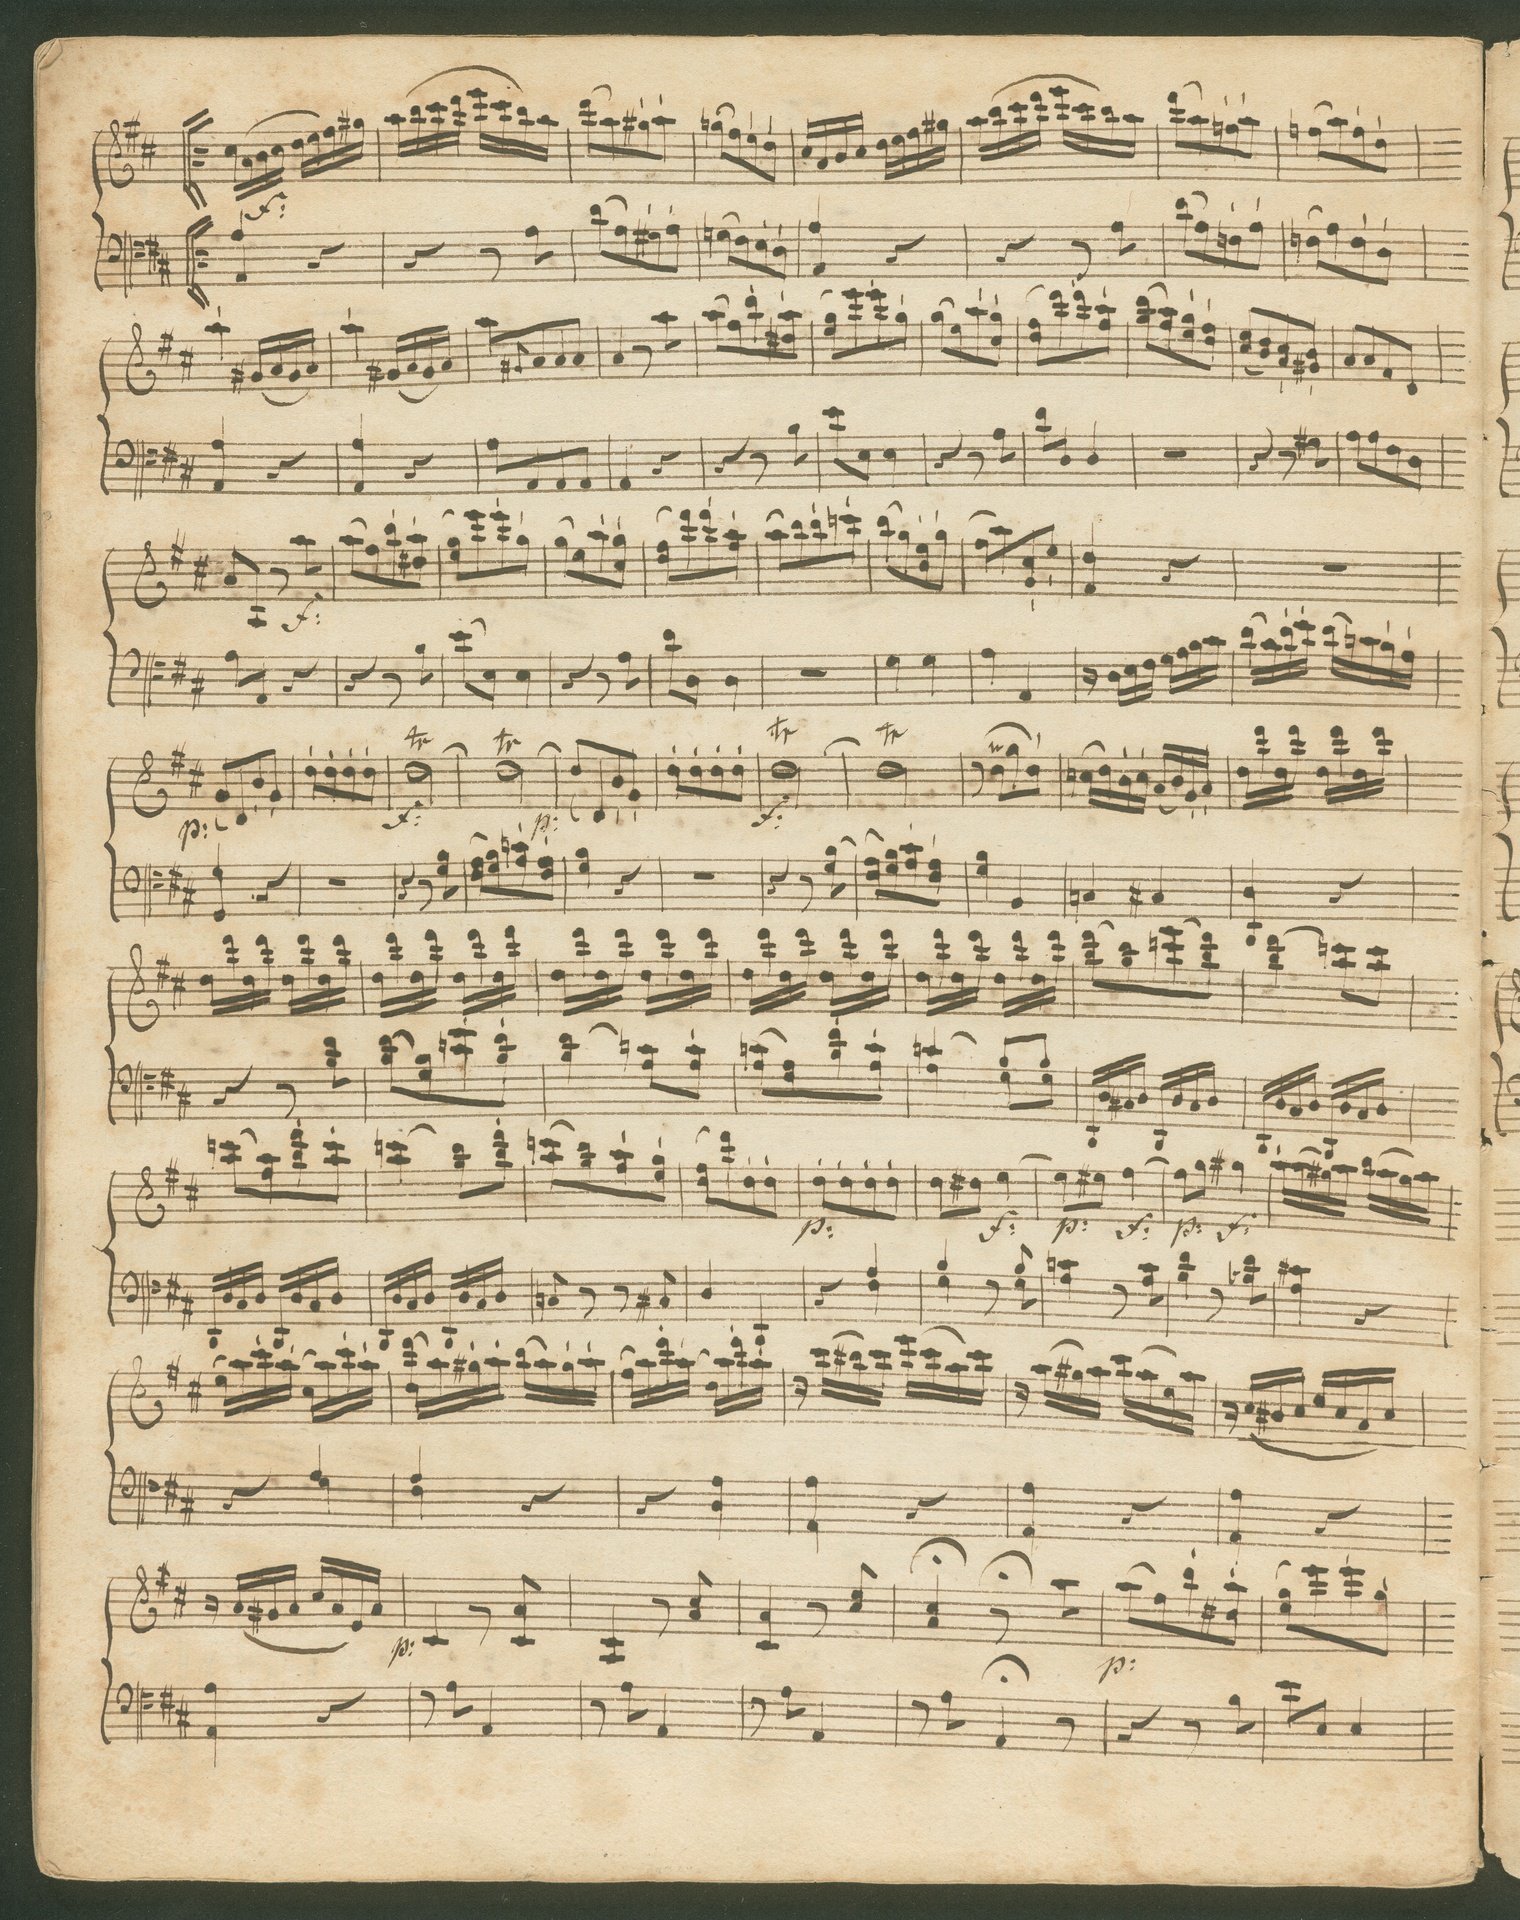 f:
f:
tr tr tr tr
p: f: p: f:
p: f: p: f: p: f:
p: p: